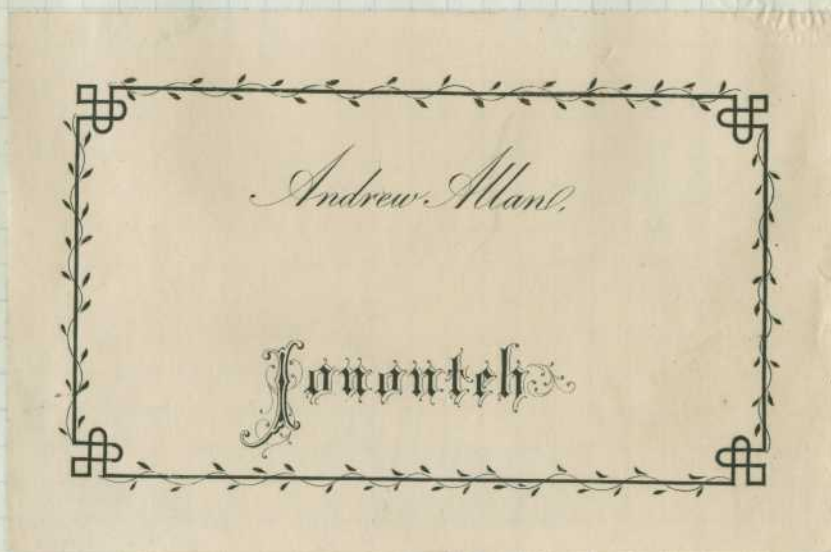 Andrew Allan.
Iononteh